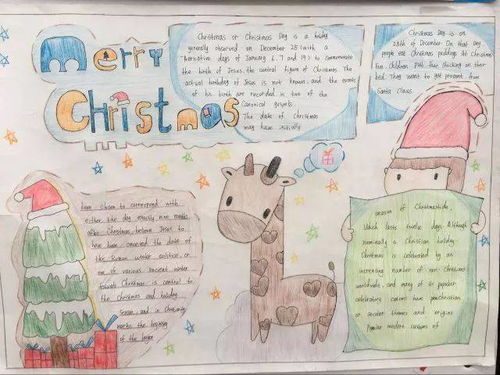 Merry
Christmas
Christmas or Christmas Day is a holiday
generally observed on December 25 (with
alternative days of January 6, 7 and 19) to commemorate
the birth of Jesus, the central figure of Christmas. The
actual birthday of Jesus is not known and the events
of his birth are recorded in two of the
Canonical
The date of Christmas
may have initially
Christmas Day is on
25th of December. On that day
people eat Christmas puddings. At Christmas
the children put the stocking on their
bed. They want to get present from
Santa Claus
been chosen to correspond with
either the day exactly nine months
after Christmas believe Jesus to
have been conceived, the date of
the Roman winter solstice or
one of various ancient winter
Christmas is central to
the Christmas and holiday
Season, and in Christianity
marks the beginning
of the larger
season of Christmastide,
which lasts twelve days. Although
nominally a Christian holiday
Christmas is celebrated by an
increasing number of non-Christians
worldwide, and many of its popular
celebratory customs have
or secular themes and origins
Popular modern customs of